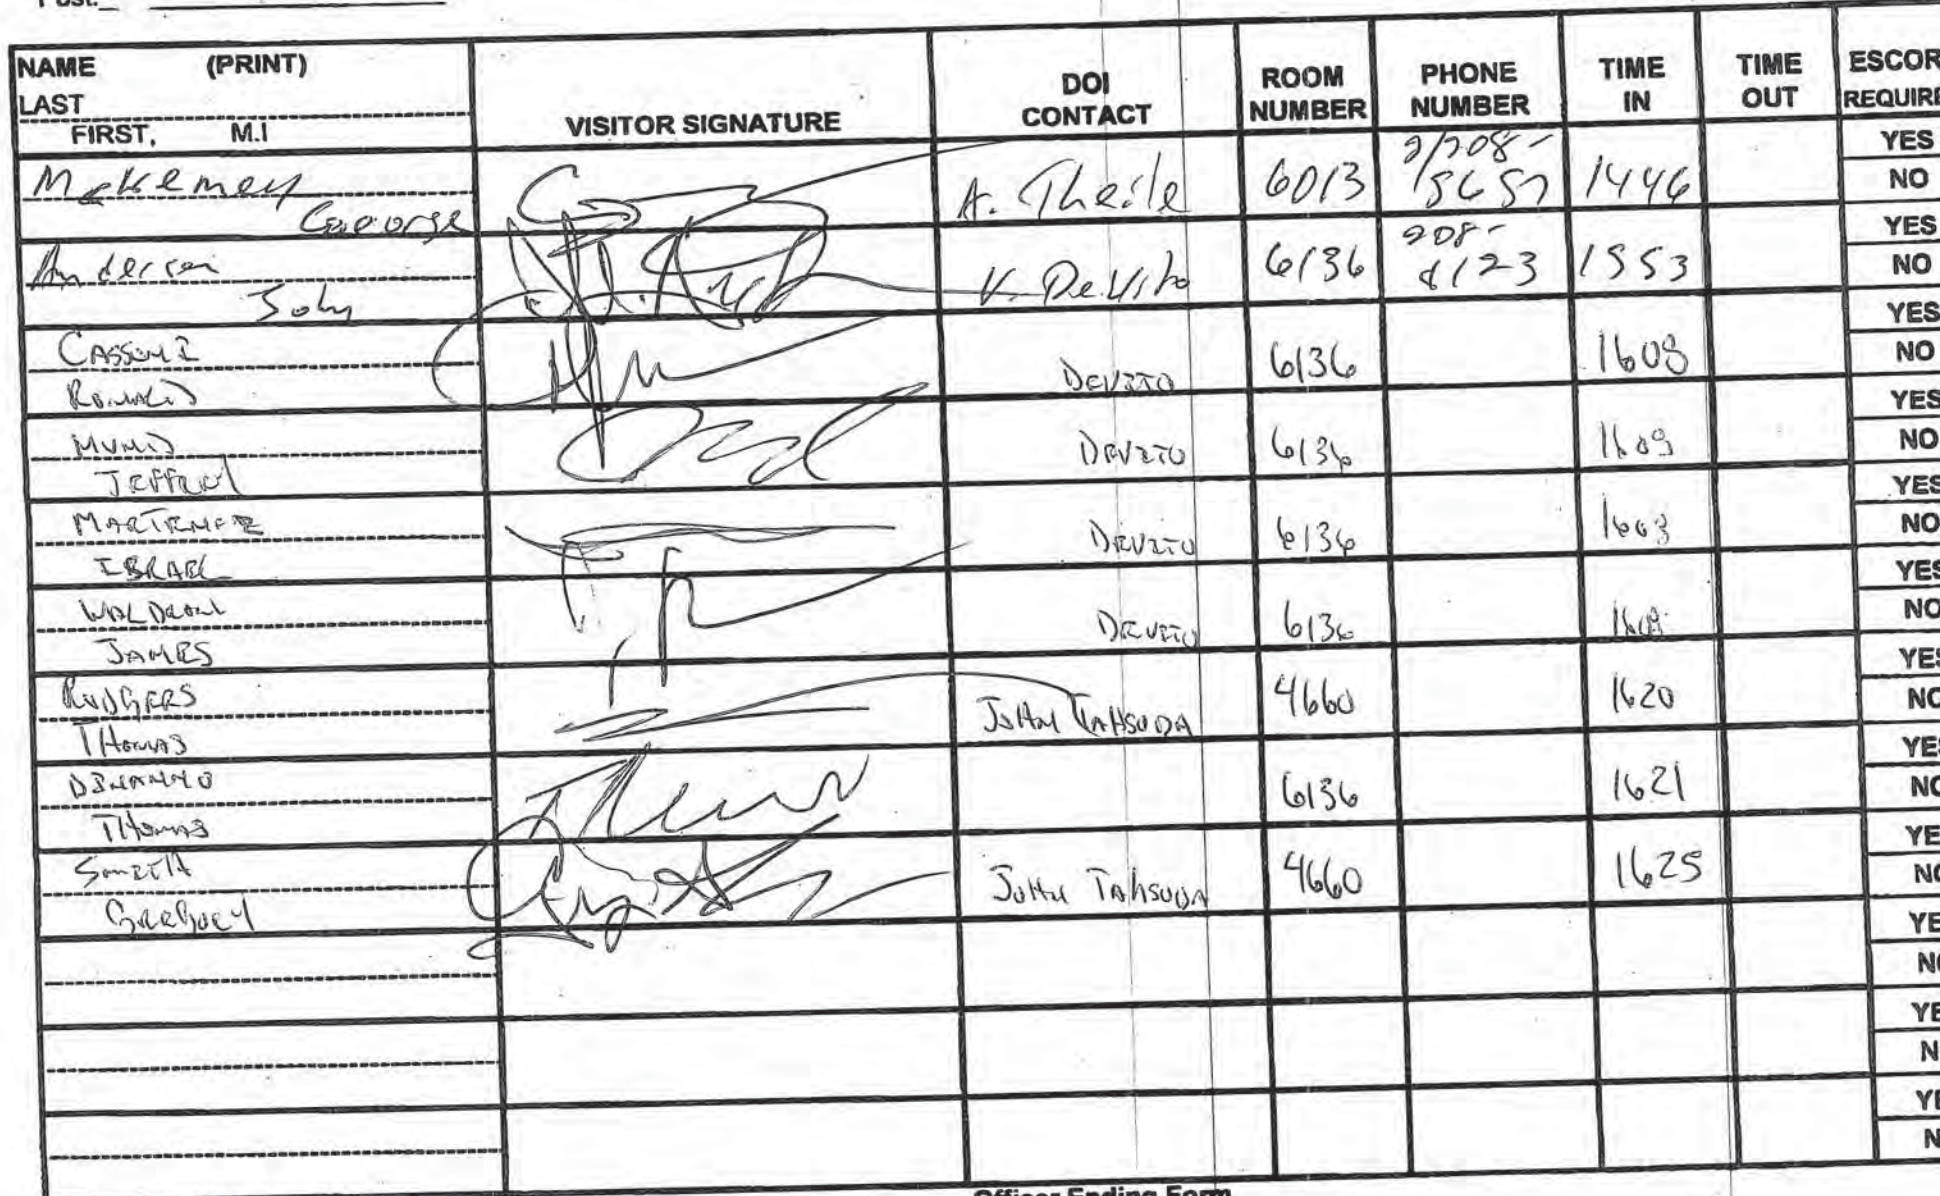 NAME (PRINT)
LAST
FIRST, M.I
VISITOR SIGNATURE
DOI
CONTACT
ROOM
NUMBER
PHONE
NUMBER
TIME
IN
TIME
OUT
ESCOR
REQUIRE
McKemey
George
A. Theile
6013
1446
YES
NO
Anderson
John
V. DeVito
6136
208-
1553
YES
NO
CASSONI
RONALD
DEVITO
6136
1608
YES
NO
JEFFREY
DEVITO
6136
1608
YES
NO
MARTINEZ
ISRAEL
DEVITO
6136
1608
YES
NO
WALDRON
JAMES
DEVITO
6136
1608
YES
NO
RODGERS
THOMAS
JOHN TAHSUDA
4660
1620
YES
NO
DINANNO
THOMAS
6136
1621
YES
NO
GREGORY
JOHN TAHSUDA
4660
1625
YE
NO
YE
NO
YE
N
YE
N
Officer Ending Form